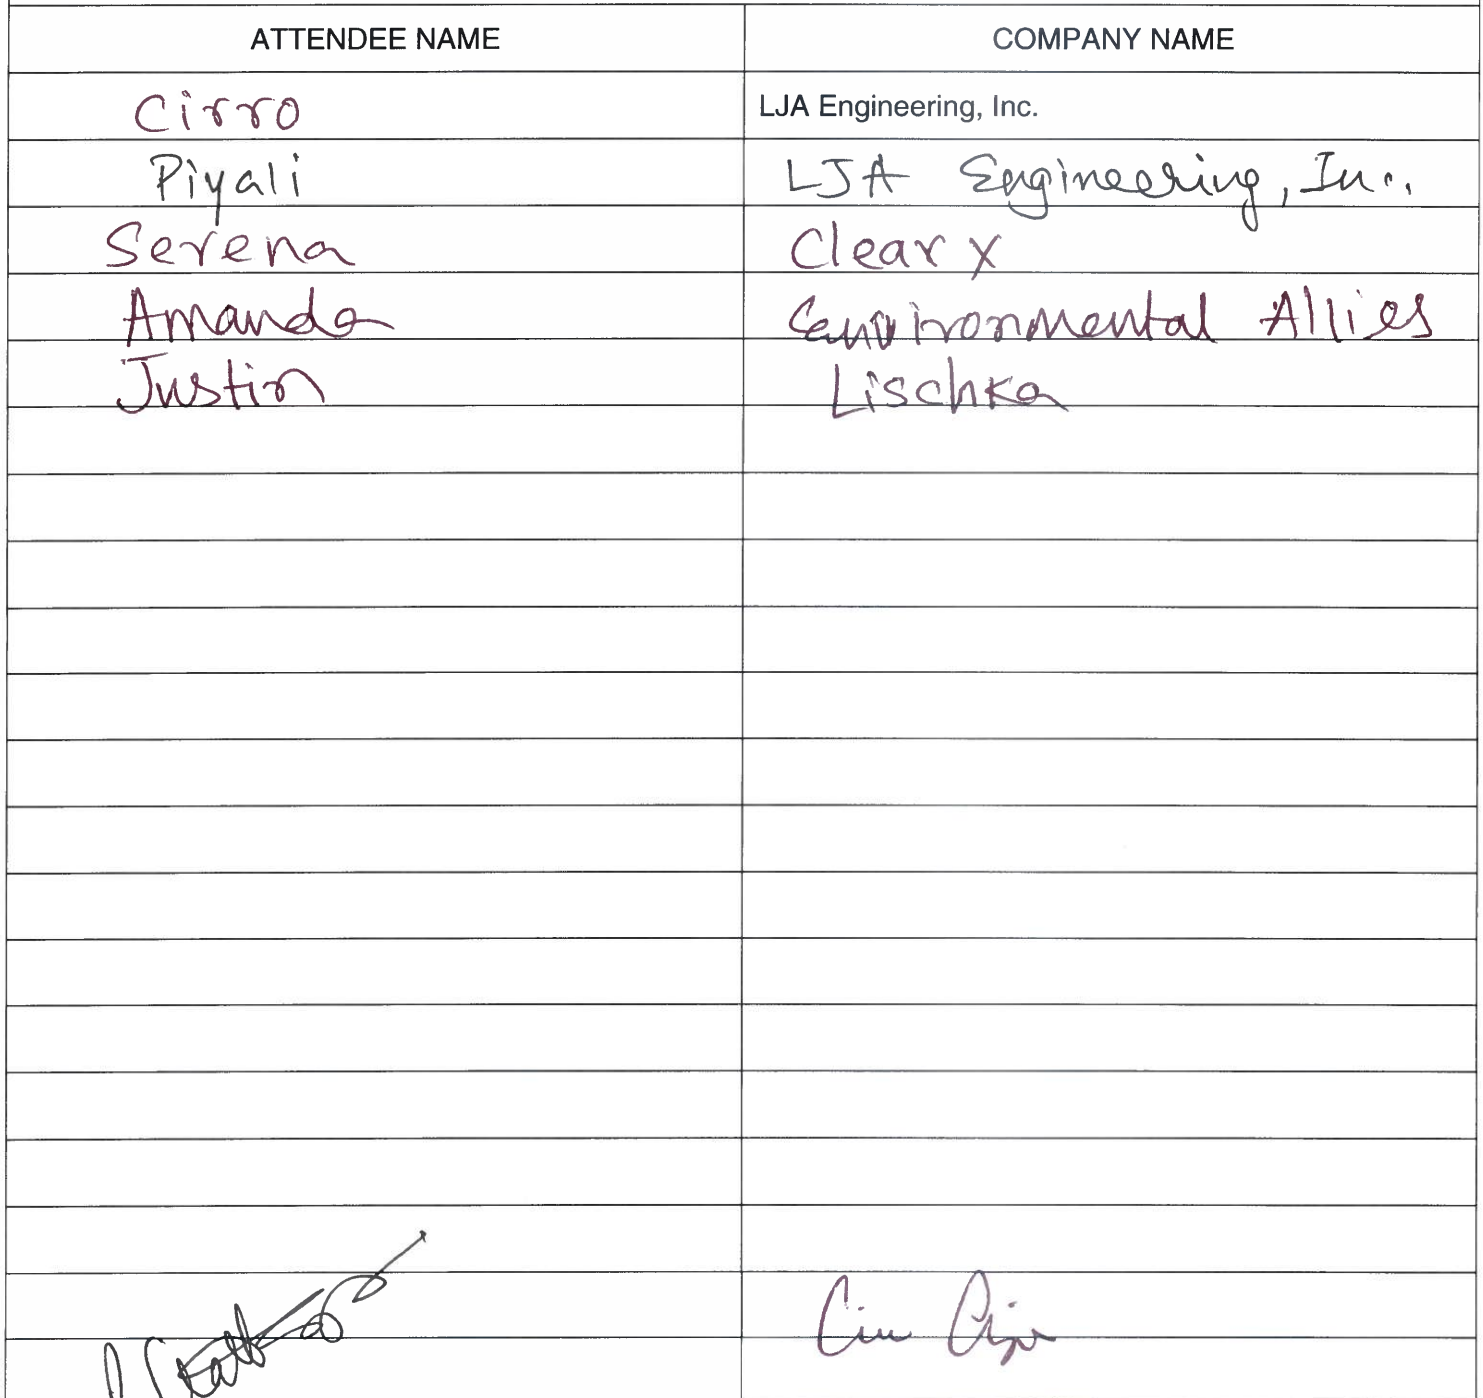 ATTENDEE NAME COMPANY NAME
Cirro LJA Engineering, Inc.
Piyali LJA Engineering, Inc.
Serena Clear X
Amanda Environmental Allies
Justin Lischka